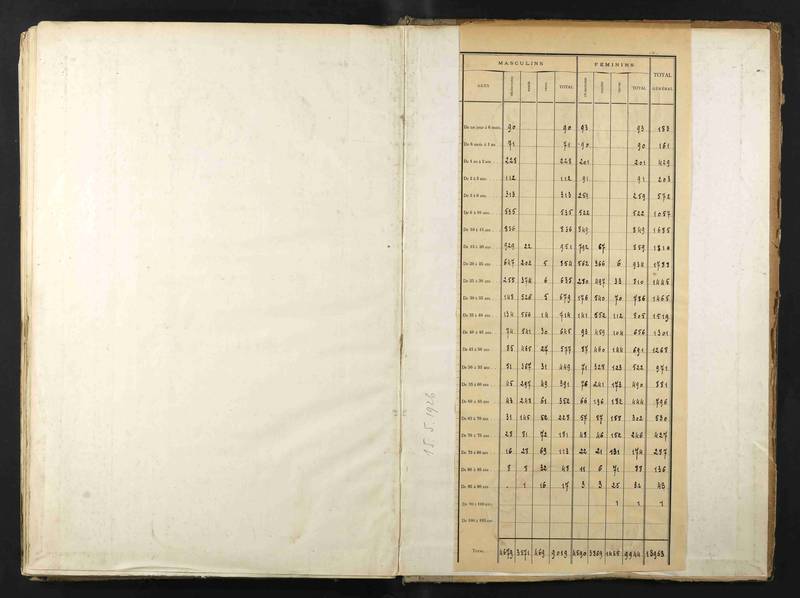 MASCULINS FÉMININS TOTAL GÉNÉRAL
AGES TOTAL TOTAL
De un jour à 6 mois 90 90 93 93 183
De 6 mois à 1 an 71 71 90 90 161
De 1 an à 2 ans 228 228 201 201 429
De 2 à 3 ans 112 112 91 91 203
De 3 à 6 ans 313 313 259 259 572
De 6 à 10 ans 535 535 522 522 1057
De 10 à 15 ans 836 836 849 849 1685
De 15 à 20 ans 929 22 951 792 67 859 1810
De 20 à 25 ans 647 202 5 854 562 366 6 934 1788
De 25 à 30 ans 255 374 6 635 280 497 33 810 1445
De 30 à 35 ans 148 526 5 679 176 540 70 786 1465
De 35 à 40 ans 134 566 14 714 141 552 112 805 1519
De 40 à 45 ans 74 541 30 645 93 459 104 656 1301
De 45 à 50 ans 85 465 27 577 87 460 144 691 1268
De 50 à 55 ans 51 367 31 449 71 328 123 522 971
De 55 à 60 ans 45 297 49 391 76 241 173 490 881
De 60 à 65 ans 43 248 61 352 66 196 182 444 796
De 65 à 70 ans 31 145 52 228 57 87 158 302 530
De 70 à 75 ans 28 81 72 181 48 46 152 246 427
De 75 à 80 ans 16 28 69 113 22 21 131 174 287
De 80 à 85 ans 8 8 32 48 11 6 71 88 136
De 85 à 90 ans 1 16 17 3 3 25 32 49
De 90 à 100 ans 1 1 1
De 100 à 105 ans
TOTAL 4679 3871 469 9019 4590 3869 1485 9944 18963
15.5.1926